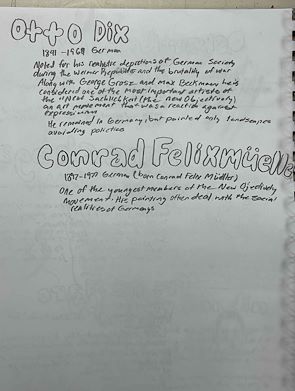 Otto Dix
1891 - 1969 German
Noted for his realistic depictions of German Society
during the Weimar Republic and the brutality of war
Along with George Grosz and max Beckmann he is
considered one of the most important artists of
the Neue Sachlichkeit (the new Objectively)
an art movement that was a reaction against
expressionism
He remained in Germany, but painted only landscapes
avoiding politics
Conrad Felixmüelle
1897-1977 German (born Conrad Felix Müeller)
One of the youngest members of the New Ojectively
movement. His painting often deal with the social
realities of Germanys